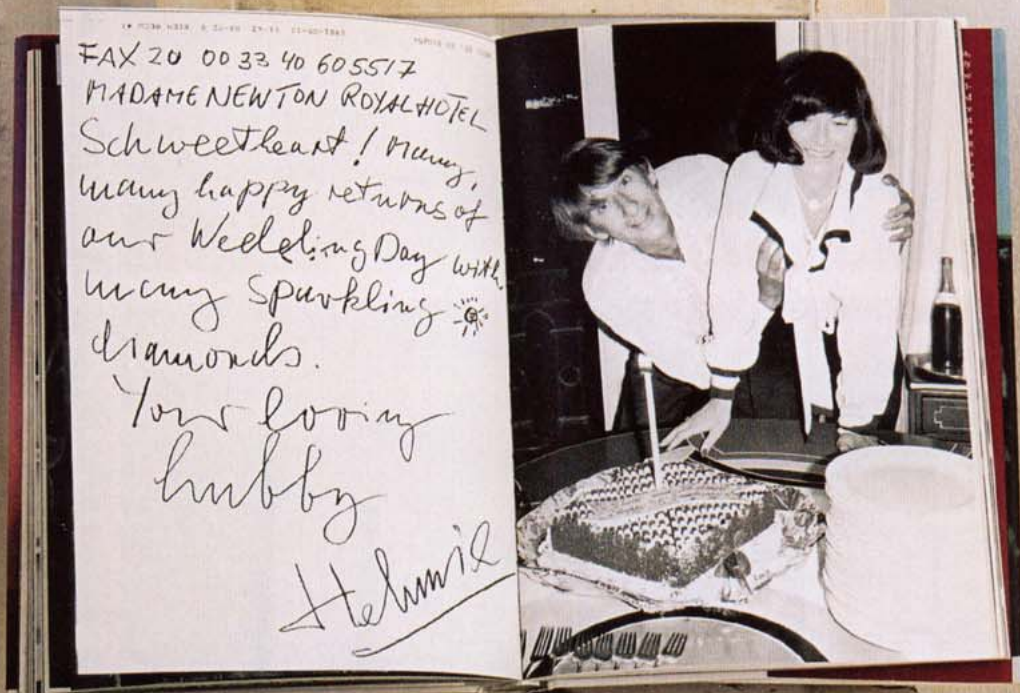 FAX 20 00 33 40 605517
MADAME NEWTON ROYAL HOTEL
Schweetheart! Many,
many happy returns of
our Wedding Day with
many sparkling
diamonds.
Your loving
hubby
Helmie